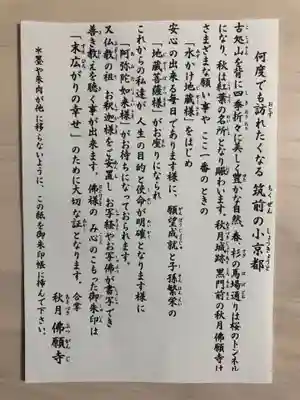 何度でも訪れたくなる 筑前の小京都
古処山を背に四季折々に美しく豊かな自然、春、杉の馬場通りは桜のトンネル
になり、秋は紅葉の名所となり賑わいます。秋月城跡、黒門前の秋月佛願寺は
さまざまな願い事や ここ一番のときの
「水かけ地蔵様」をはじめ
安心の出来る毎日であります様に、願望成就と子孫繁栄の
「地蔵菩薩様」がお座りになられ
これからの私達が人生の目的と使命が明確となります様に
「阿弥陀如来様」がお待ちになっておられます。
又仏教の祖 お釈迦様をご安置し お写経やお写佛が書写でき
善き教えを聴く事が出来ます。佛様の み心のこもった御朱印は
「末広がりの幸せ」のために大切な証となります。 合掌
秋月 佛願寺
＊墨や朱肉が他に移らないように、この紙を御朱印帳に挿んで下さい。